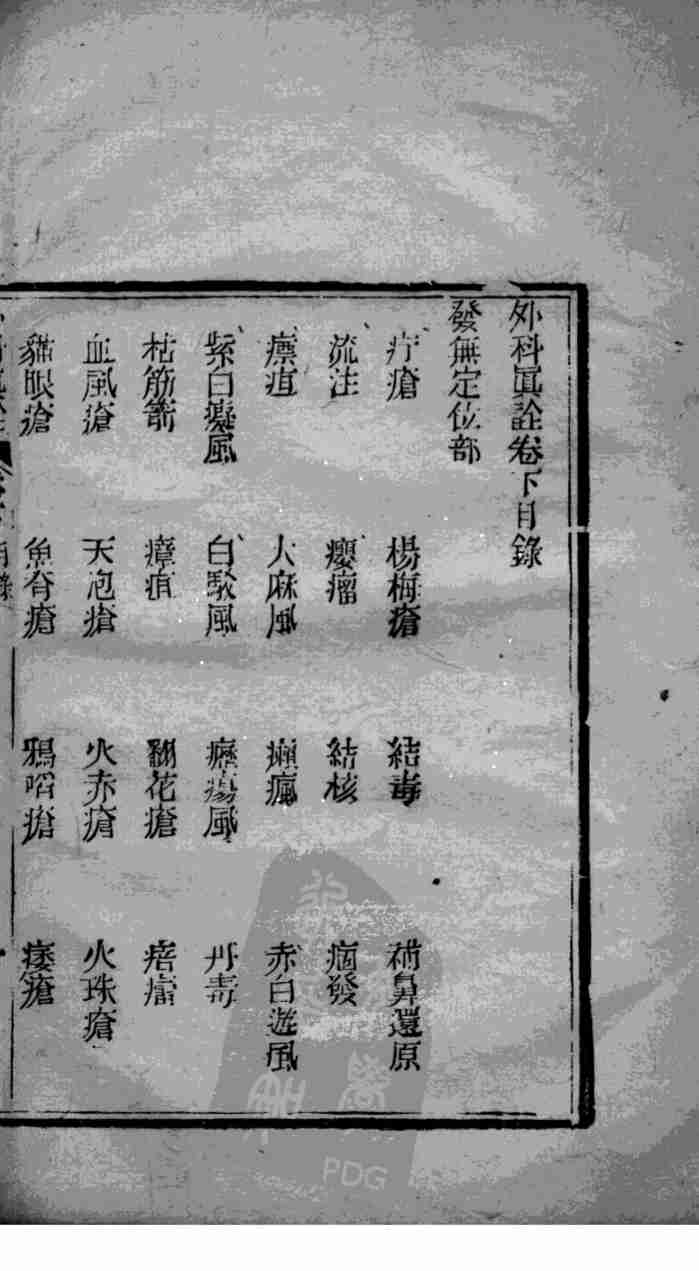 外科眞詮卷下目錄
發無定位部
疔瘡 楊梅瘡 結毒 補鼻還原
流注 癭瘤 結核 痼發
瘰疽 大麻風 癩瘋 赤白遊風
紫白癜風 白駁風 癧瘍風 丹毒
枯筋箭 瘴疽 翻花瘡 痦㿔
血風瘡 天疱瘡 火赤瘡 火珠瘡
貓眼瘡 魚脊瘡 鴉啗瘡 痿瘡
PDG